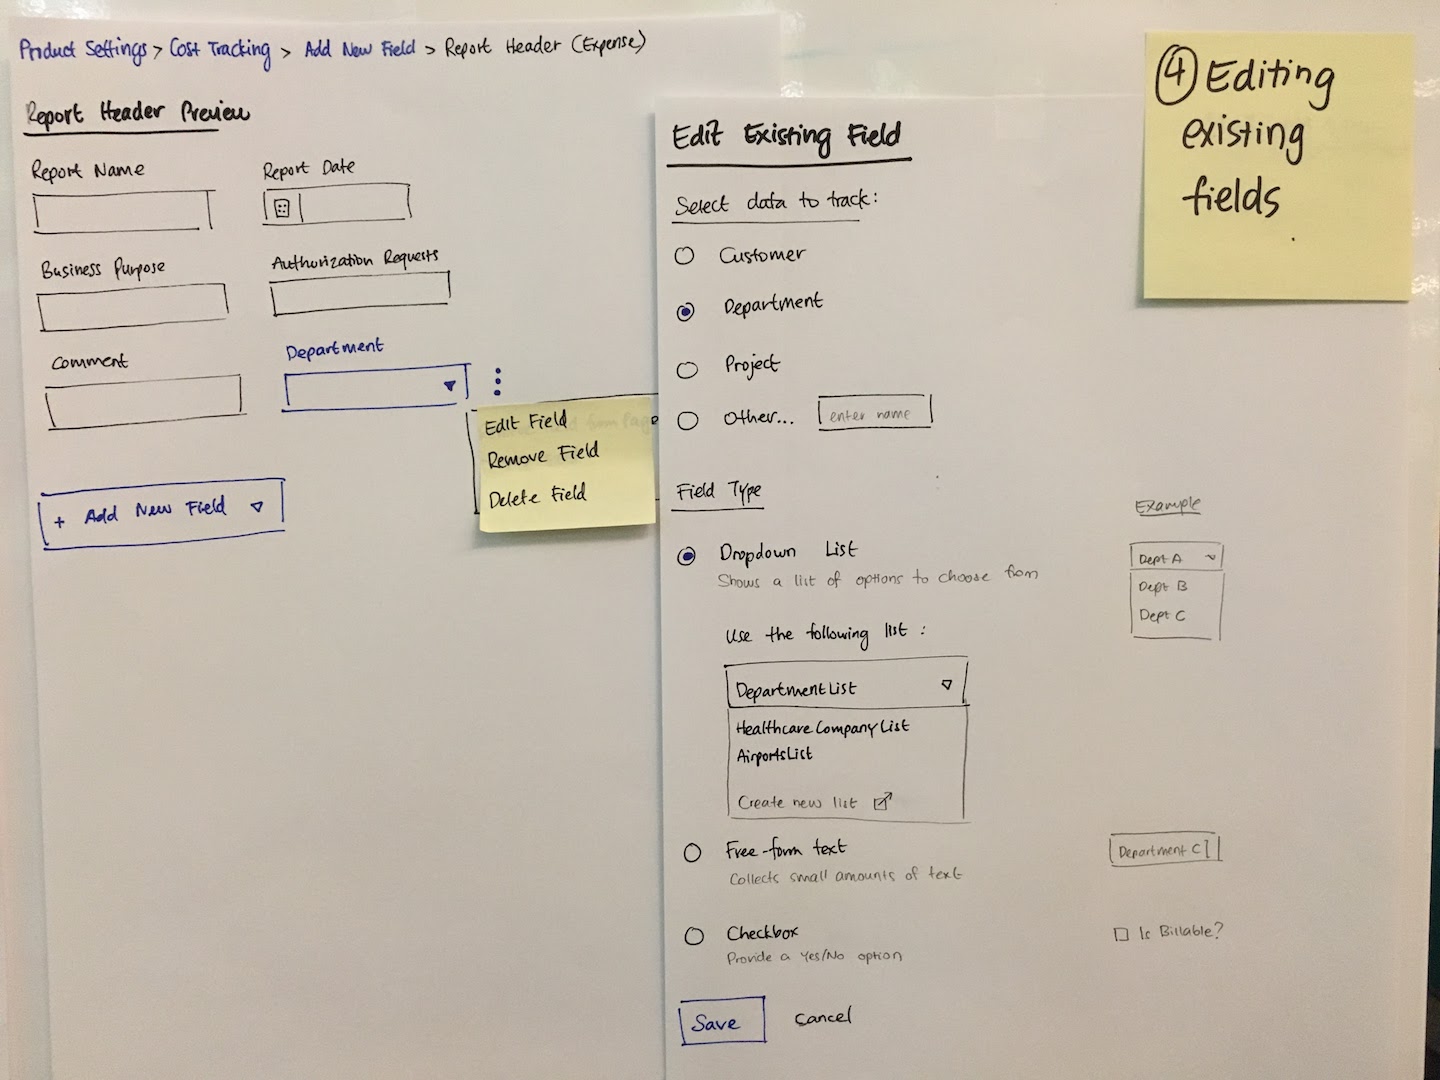 Product Settings > Cost Tracking > Add New Field > Report Header (Expense)
Report Header Preview
Report Name
Report Date
Business Purpose
Authorization Requests
Comment
Department
Edit Field
Remove Field
Delete Field
+ Add New Field
Edit Existing Field
Select data to track:
Customer
Department
Project
Other... enter name
Field Type
Example
Dropdown List
Shows a list of options to choose from
Dept A
Dept B
Dept C
Use the following list :
DepartmentList
HealthcareCompanyList
AirportsList
Create new list
Free-form text
Collects small amounts of text
Department C
Checkbox
Provide a Yes/No option
Is Billable?
Save Cancel
4 Editing
existing
fields